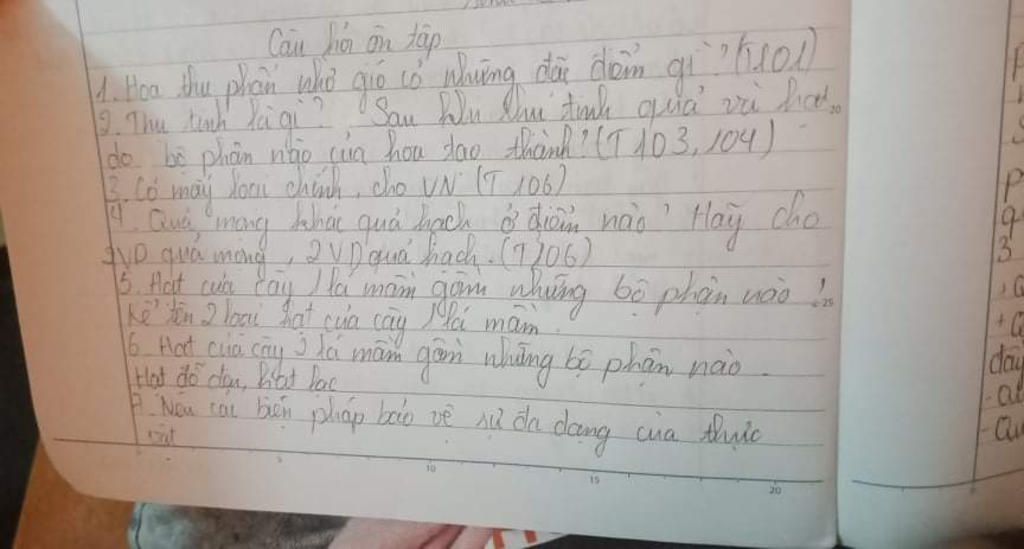 Câu hỏi ôn tập
1. Hoa thụ phấn nhờ gió có những đặc điểm gì? (T101)
2. Thụ tinh là gì? Sau khi thụ tinh quả và hạt
do bộ phận nào của hoa tạo thành? (T 103, 104)
3. Có mấy loại chính, cho VN (T 106)
4. Quả mọng khác quả hạch ở điểm nào? Hãy cho
2VD quả mọng, 2 VD quả hạch. (T106)
5. Hạt của cây 1 lá mầm gồm những bộ phận nào?
Kể tên 2 loại hạt của cây 1 lá mầm.
6. Hạt của cây 2 lá mầm gồm những bộ phận nào.
Hạt đỗ đen, hạt lạc
7. Nêu các biện pháp bảo vệ sự đa dạng của thực
vật
5 10 15 20
20
25